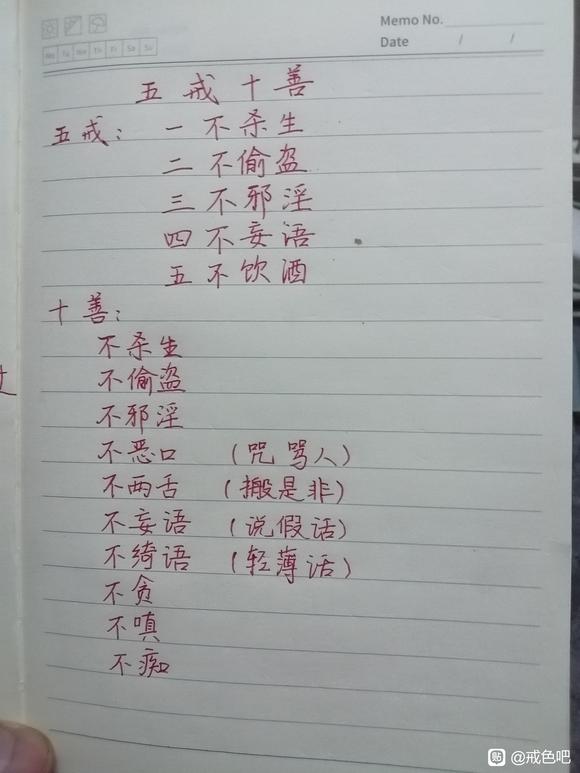 Memo No.
Date / /
Mo Tu We Th Fr Sa Su
五戒十善
五戒： 一不杀生
二不偷盗
三不邪淫
四不妄语
五不饮酒
十善：
不杀生
不偷盗
不邪淫
不恶口 （咒骂人）
不两舌 （搬是非）
不妄语 （说假话）
不绮语 （轻薄话）
不贪
不嗔
不痴
贴 @戒色吧